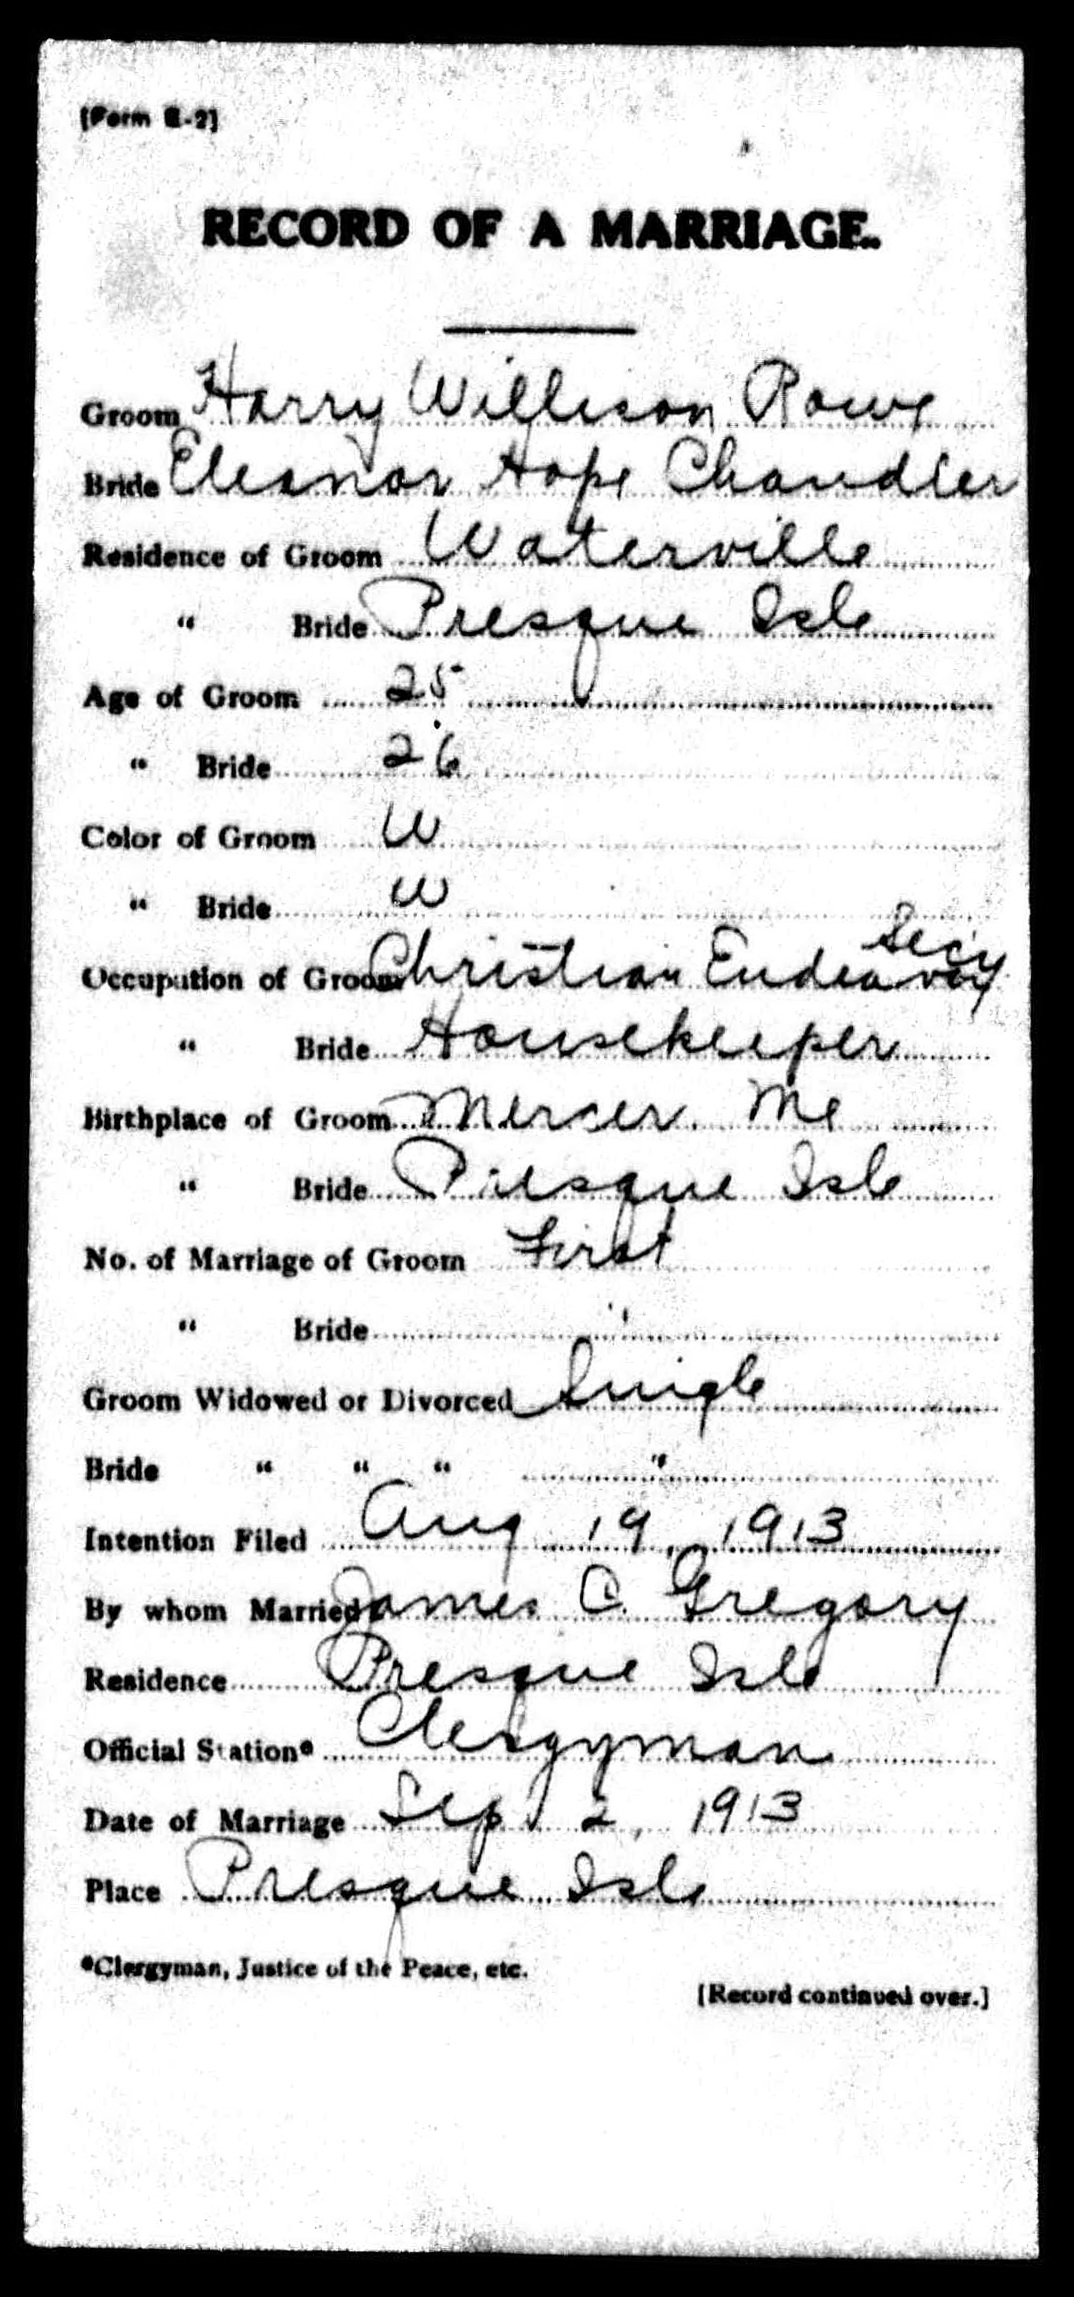 [Form E-2]
RECORD OF A MARRIAGE.
Groom Harry Willison Rowe
Bride Eleanor Hope Chandler
Residence of Groom Waterville
" Bride Presque Isle
Age of Groom 25
" Bride 26
Color of Groom W
" Bride W
Occupation of Groom Christian Endeavor Sec'y
" Bride Housekeeper
Birthplace of Groom Mercer Me
" Bride Presque Isle
No. of Marriage of Groom First
" Bride "
Groom Widowed or Divorced Single
Bride " " " "
Intention Filed Aug 19, 1913
By whom Married James C. Gregory
Residence Presque Isle
Official Station* Clergyman
Date of Marriage Sep 2, 1913
Place Presque Isle
*Clergyman, Justice of the Peace, etc.
[Record continued over.]